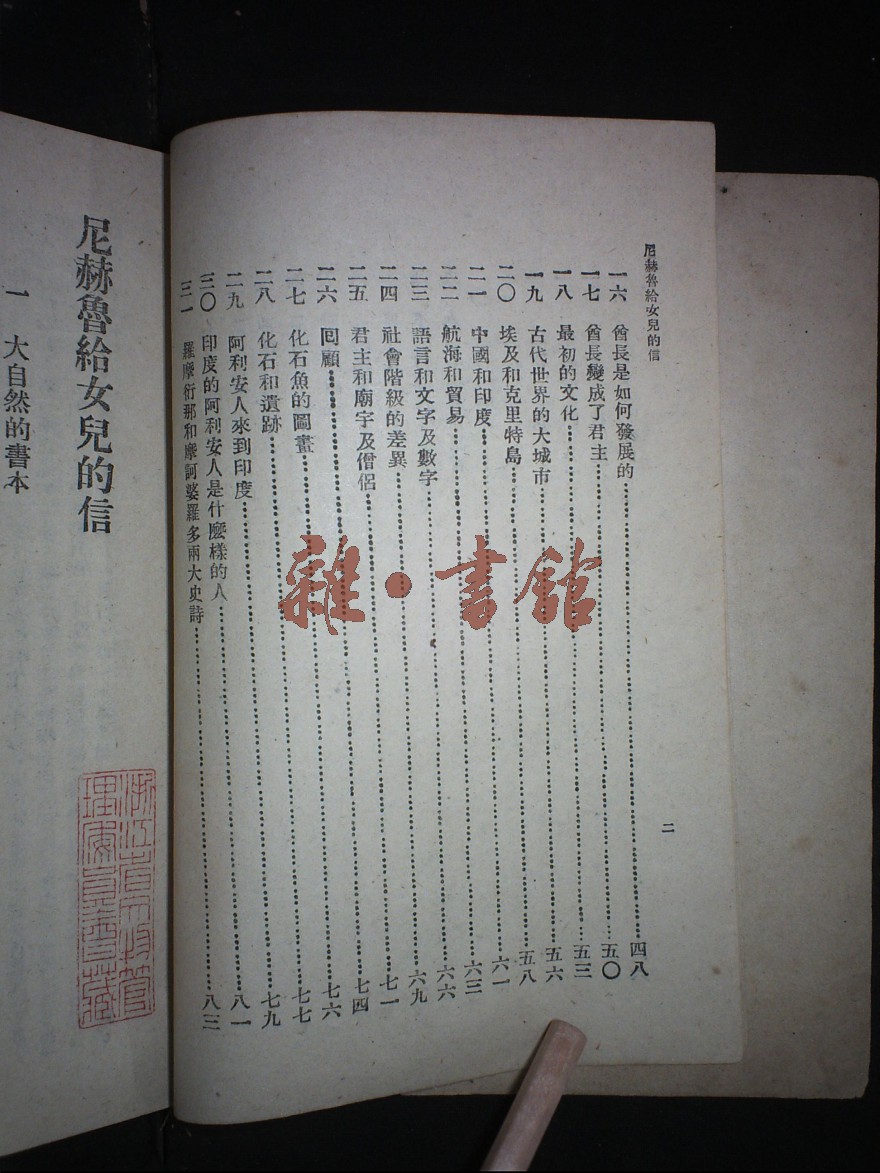 尼赫魯給女兒的信
一六 酋長是如何發展的 四八
一七 酋長變成了君主 五〇
一八 最初的文化 五三
一九 古代世界的大城市 五六
二〇 埃及和克里特島 五八
二一 中國和印度 六一
二二 航海和貿易 六三
二三 語言和文字及數字 六六
二四 社會階級的差異 六九
二五 君主和廟宇及僧侶 七一
二六 回顧 七四
二七 化石魚的圖畫 七六
二八 化石和遺跡 七七
二九 阿利安人來到印度 七九
三〇 印度的阿利安人是什麼樣的人 八一
三一 羅摩衍那和摩訶婆羅多兩大史詩 八三
二
尼赫魯給女兒的信
一 大自然的書本
雜·書館